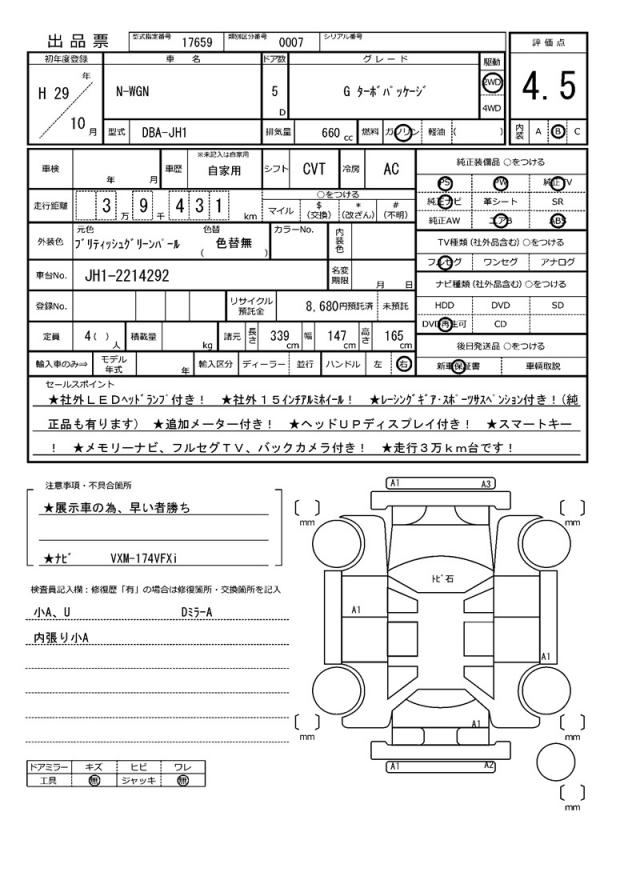 出品票
型式指定番号 17659 類別区分番号 0007 シリアル番号
評価点
4.5
内装 A B C
初年度登録 車名 ドア数 グレード 駆動
H 29 年 10 月
N-WGN 5 D G ターボパッケージ 2WD
4WD
型式 DBA-JH1 排気量 660 cc 燃料 ガソリン 軽油 ( )
車検 年 月 車歴 ※未記入は自家用 自家用 シフト CVT 冷房 AC
走行距離 3 万 9 千 4 3 1 km
○をつける
マイル $(交換) *(改ざん) #(不明)
外装色 元色 ブリティッシュグリーンパール 色替 ( 色替無 ) カラーNo. 内装色
車台No. JH1-2214292 名変期限 月 日
登録No. リサイクル預託金 8,680円預託済 未預託
定員 4( ) 人 積載量 kg 諸元 長さ 339 cm 幅 147 cm 高さ 165 cm
輸入車のみ⇒ モデル年式 年 輸入区分 ディーラー 並行 ハンドル 左 右
純正装備品 ○をつける
PS PW 純正TV
純正ナビ 革シート SR
純正AW エアB ABS
TV種類(社外品含む)○をつける
フルセグ ワンセグ アナログ
ナビ種類(社外品含む)○をつける
HDD DVD SD
DVD再生可 CD
後日発送品 ○をつける
新車保証書 車輌取説
セールスポイント
★社外LEDヘッドランプ付き! ★社外15インチアルミホイール! ★レーシングギア・スポーツサスペンション付き!(純
正品も有ります) ★追加メーター付き! ★ヘッドUPディスプレイ付き! ★スマートキー
! ★メモリーナビ、フルセグTV、バックカメラ付き! ★走行3万km台です!
注意事項・不具合箇所
★展示車の為、早い者勝ち
★ナビ VXM-174VFXi
検査員記入欄:修復歴「有」の場合は修復箇所・交換箇所を記入
小A、U DミラーA
内張り小A
ドアミラー キズ ヒビ ワレ
工具 無 ジャッキ 無
A1 A3
mm mm
トビ石
A1
A1
A1
mm mm
A1 A2
mm